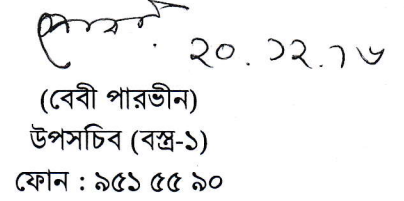 ২০.১২.১৬
(বেবী পারভীন)
উপসচিব (বস্ত্র-১)
ফোন : ৯৫১ ৫৫ ৯০